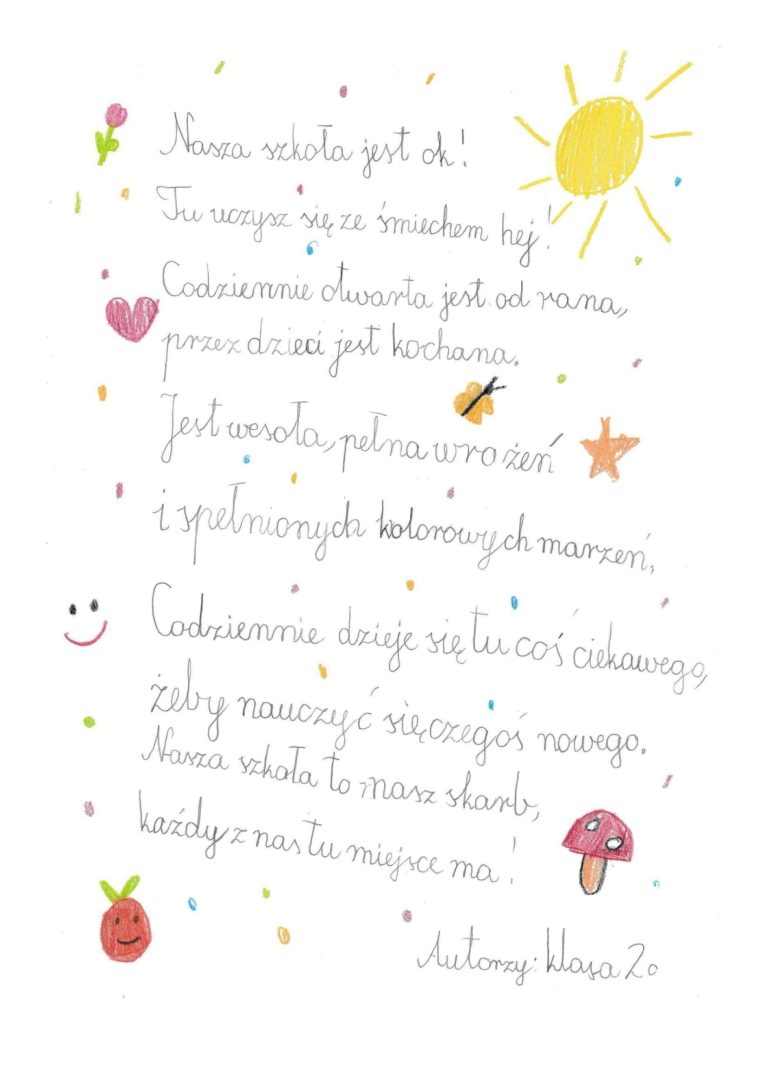 Nasza szkoła jest ok!
Tu uczysz się ze śmiechem hej!
Codziennie otwarta jest od rana,
przez dzieci jest kochana.
Jest wesoła, pełna wrożeń
i spełnionych kolorowych marzeń,
Codziennie dzieje się tu coś ciekawego,
żeby nauczyć się czegoś nowego.
Nasza szkoła to nasz skarb,
każdy z nas tu miejsce ma!
Autorzy: klasa 2c